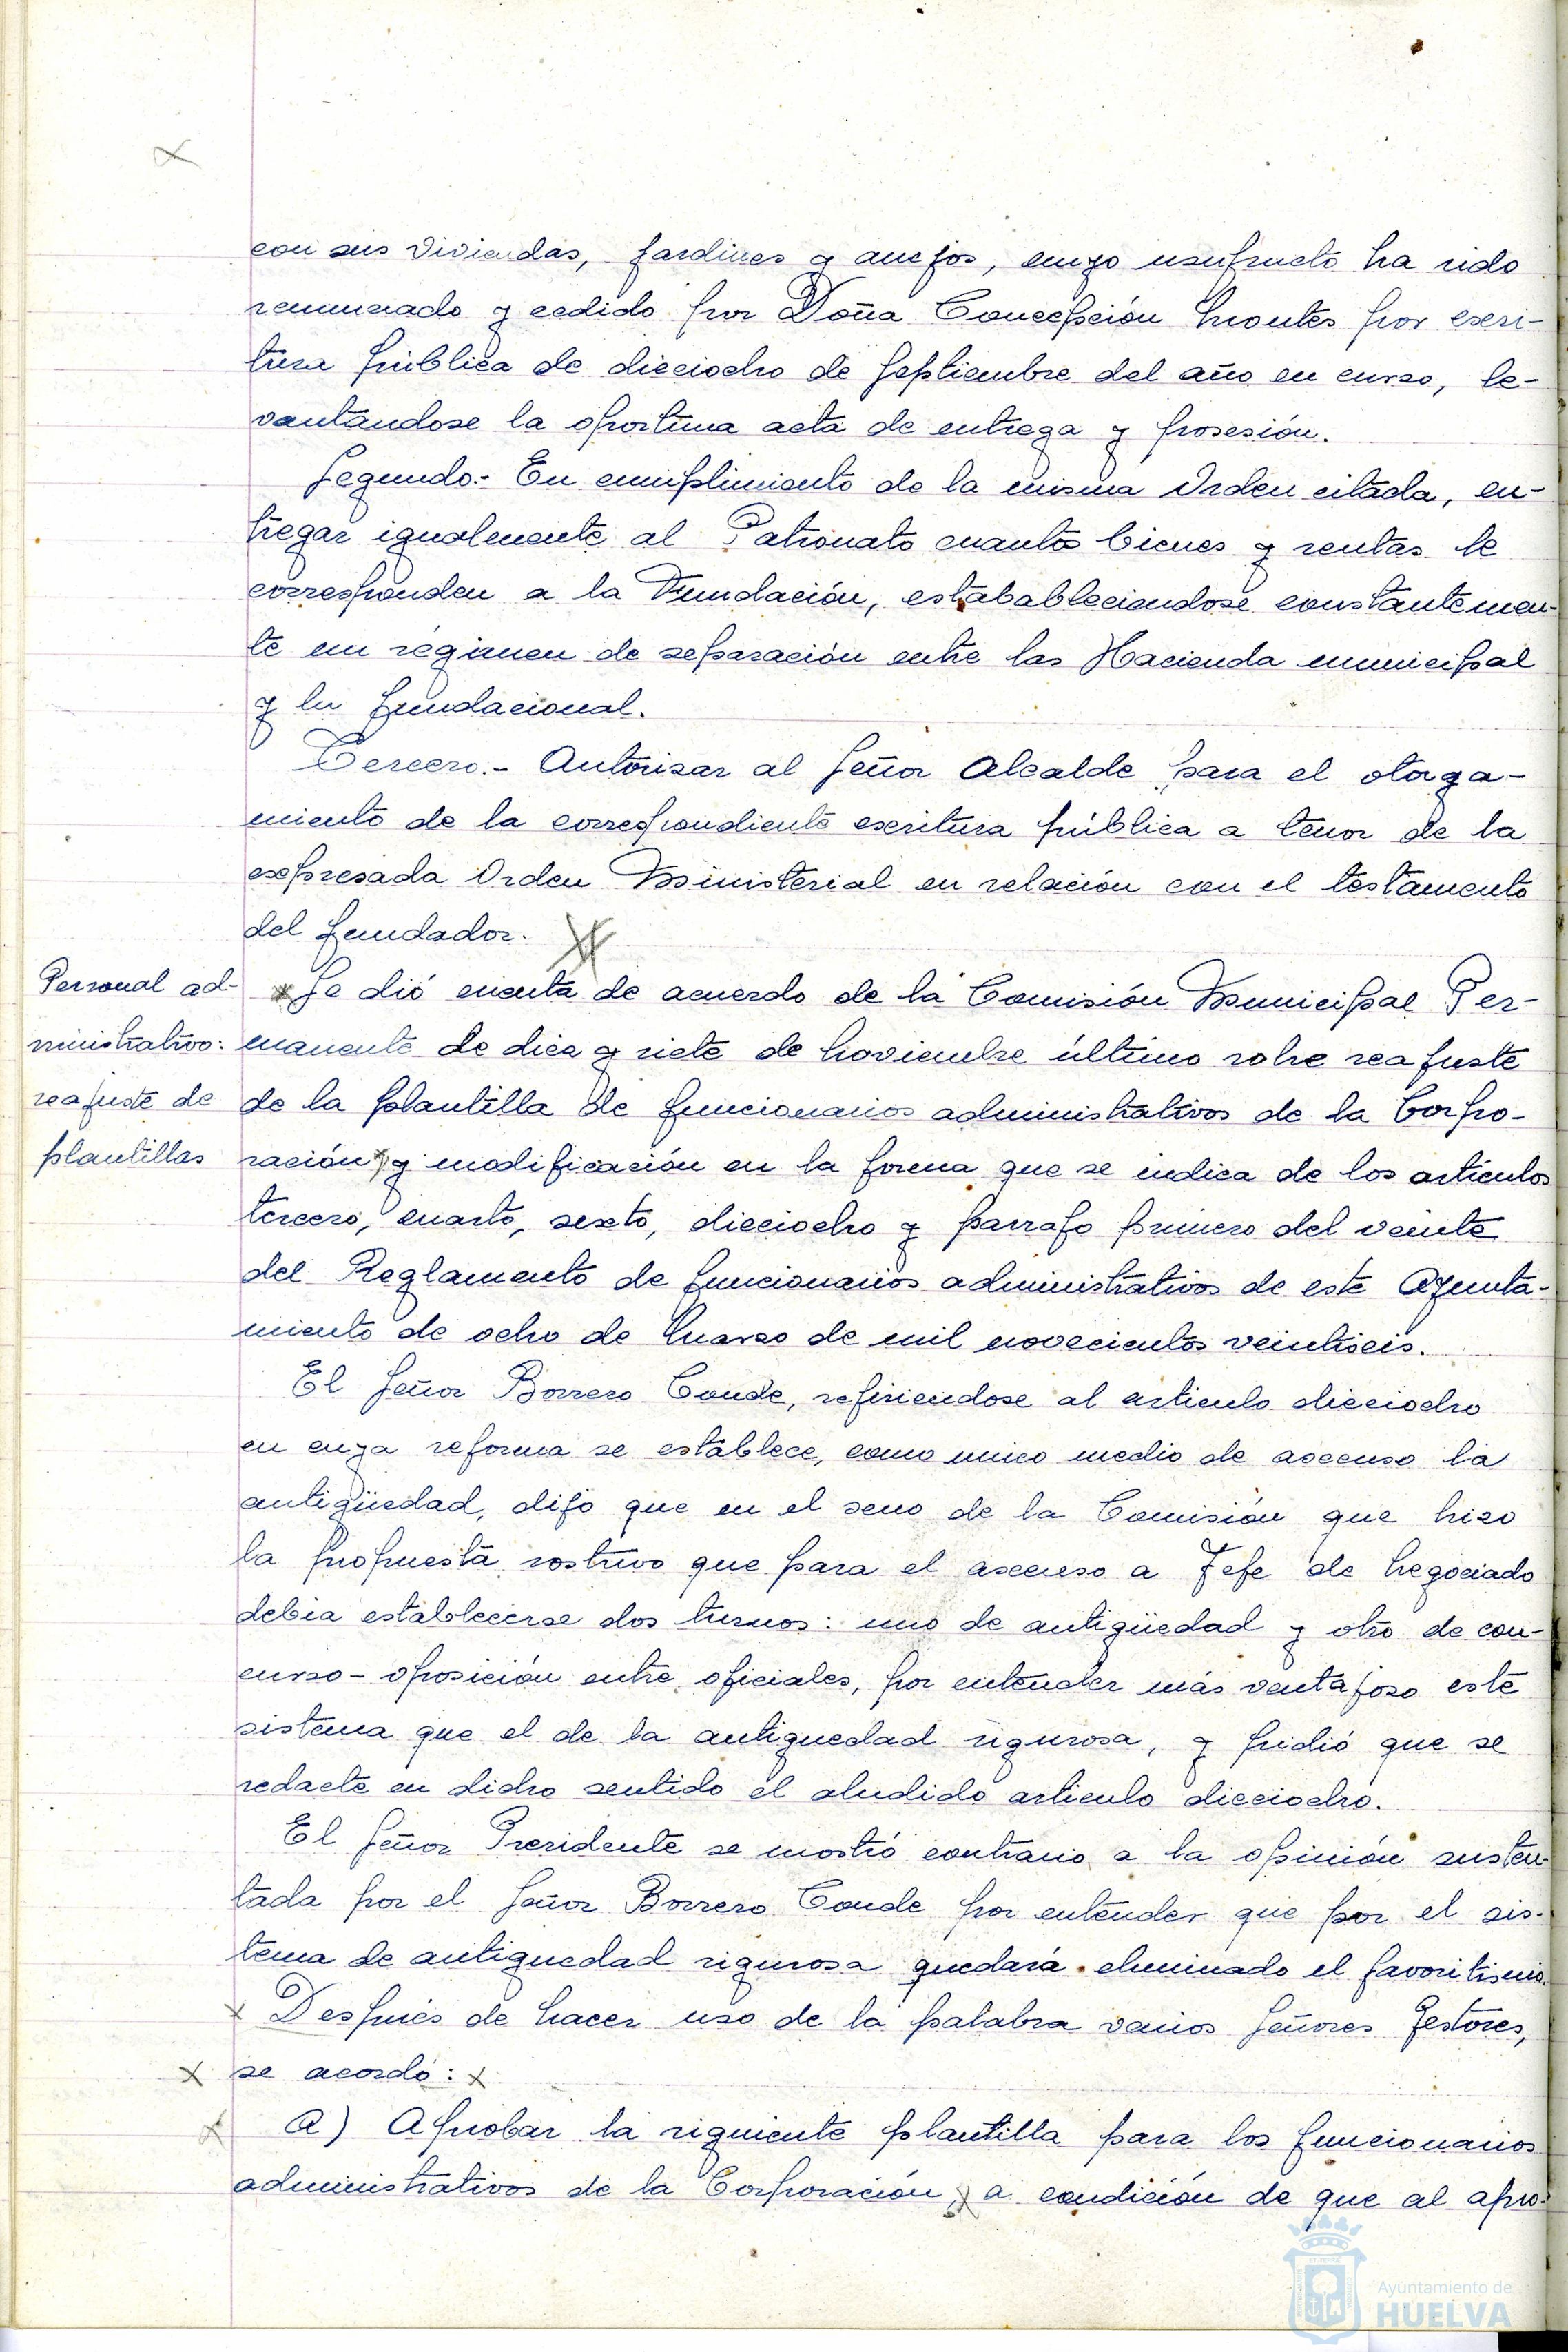 con sus viviendas, jardines y anejos, cuyo usufructo ha sido
renunciado y cedido por Doña Concepción Montes por escri-
tura pública de dieciocho de Septiembre del año en curso, le-
vantándose la oportuna acta de entrega y posesión.
Segundo.- En cumplimiento de la misma Orden citada, en-
tregar igualmente al Patronato cuantos bienes y rentas le
corresponden a la Fundación, estabableciendose constantemen-
te un régimen de separación entre las Hacienda municipal
y la fundacional.
Tercero.- Autorizar al Señor Alcalde para el otorga-
miento de la correspondiente escritura pública a tenor de la
expresada Orden Ministerial en relación con el testamento
del fundador.
Personal ad-
ministrativo:
reajuste de
plantillas
Se dió cuenta de acuerdo de la Comisión Municipal Per-
manente de diez y siete de Noviembre último sobre reajuste
de la plantilla de funcionarios administrativos de la Corpo-
ración y modificación en la forma que se indica de los artículos
tercero, cuarto, sexto, dieciocho y parrafo primero del veinte
del Reglamento de funcionarios administrativos de este Ayunta-
miento de ocho de Marzo de mil novecientos veintiseis.
El Señor Borrero Conde, refiriendose al articulo dieciocho
en cuya reforma se establece, como unico medio de ascenso la
antigüedad, dijo que en el seno de la Comisión que hizo
la propuesta sostuvo que para el ascenso a Jefe de Negociado
debia establecerse dos turnos: uno de antigüedad y otro de con-
curso-oposición entre oficiales, por entender más ventajoso este
sistema que el de la antiguedad rigurosa, y pidió que se
redacte en dicho sentido el aludido articulo dieciocho.
El Señor Presidente se mostró contrario a la opinión susten-
tada por el Señor Borrero Conde por entender que por el sis-
tema de antiguedad rigurosa quedará eliminado el favoritismo.
Después de hacer uso de la palabra varios Señores Gestores,
se acordó:
A) Aprobar la siguiente plantilla para los funcionarios
administrativos de la Corporación, a condición de que al apro-
Ayuntamiento de
HUELVA